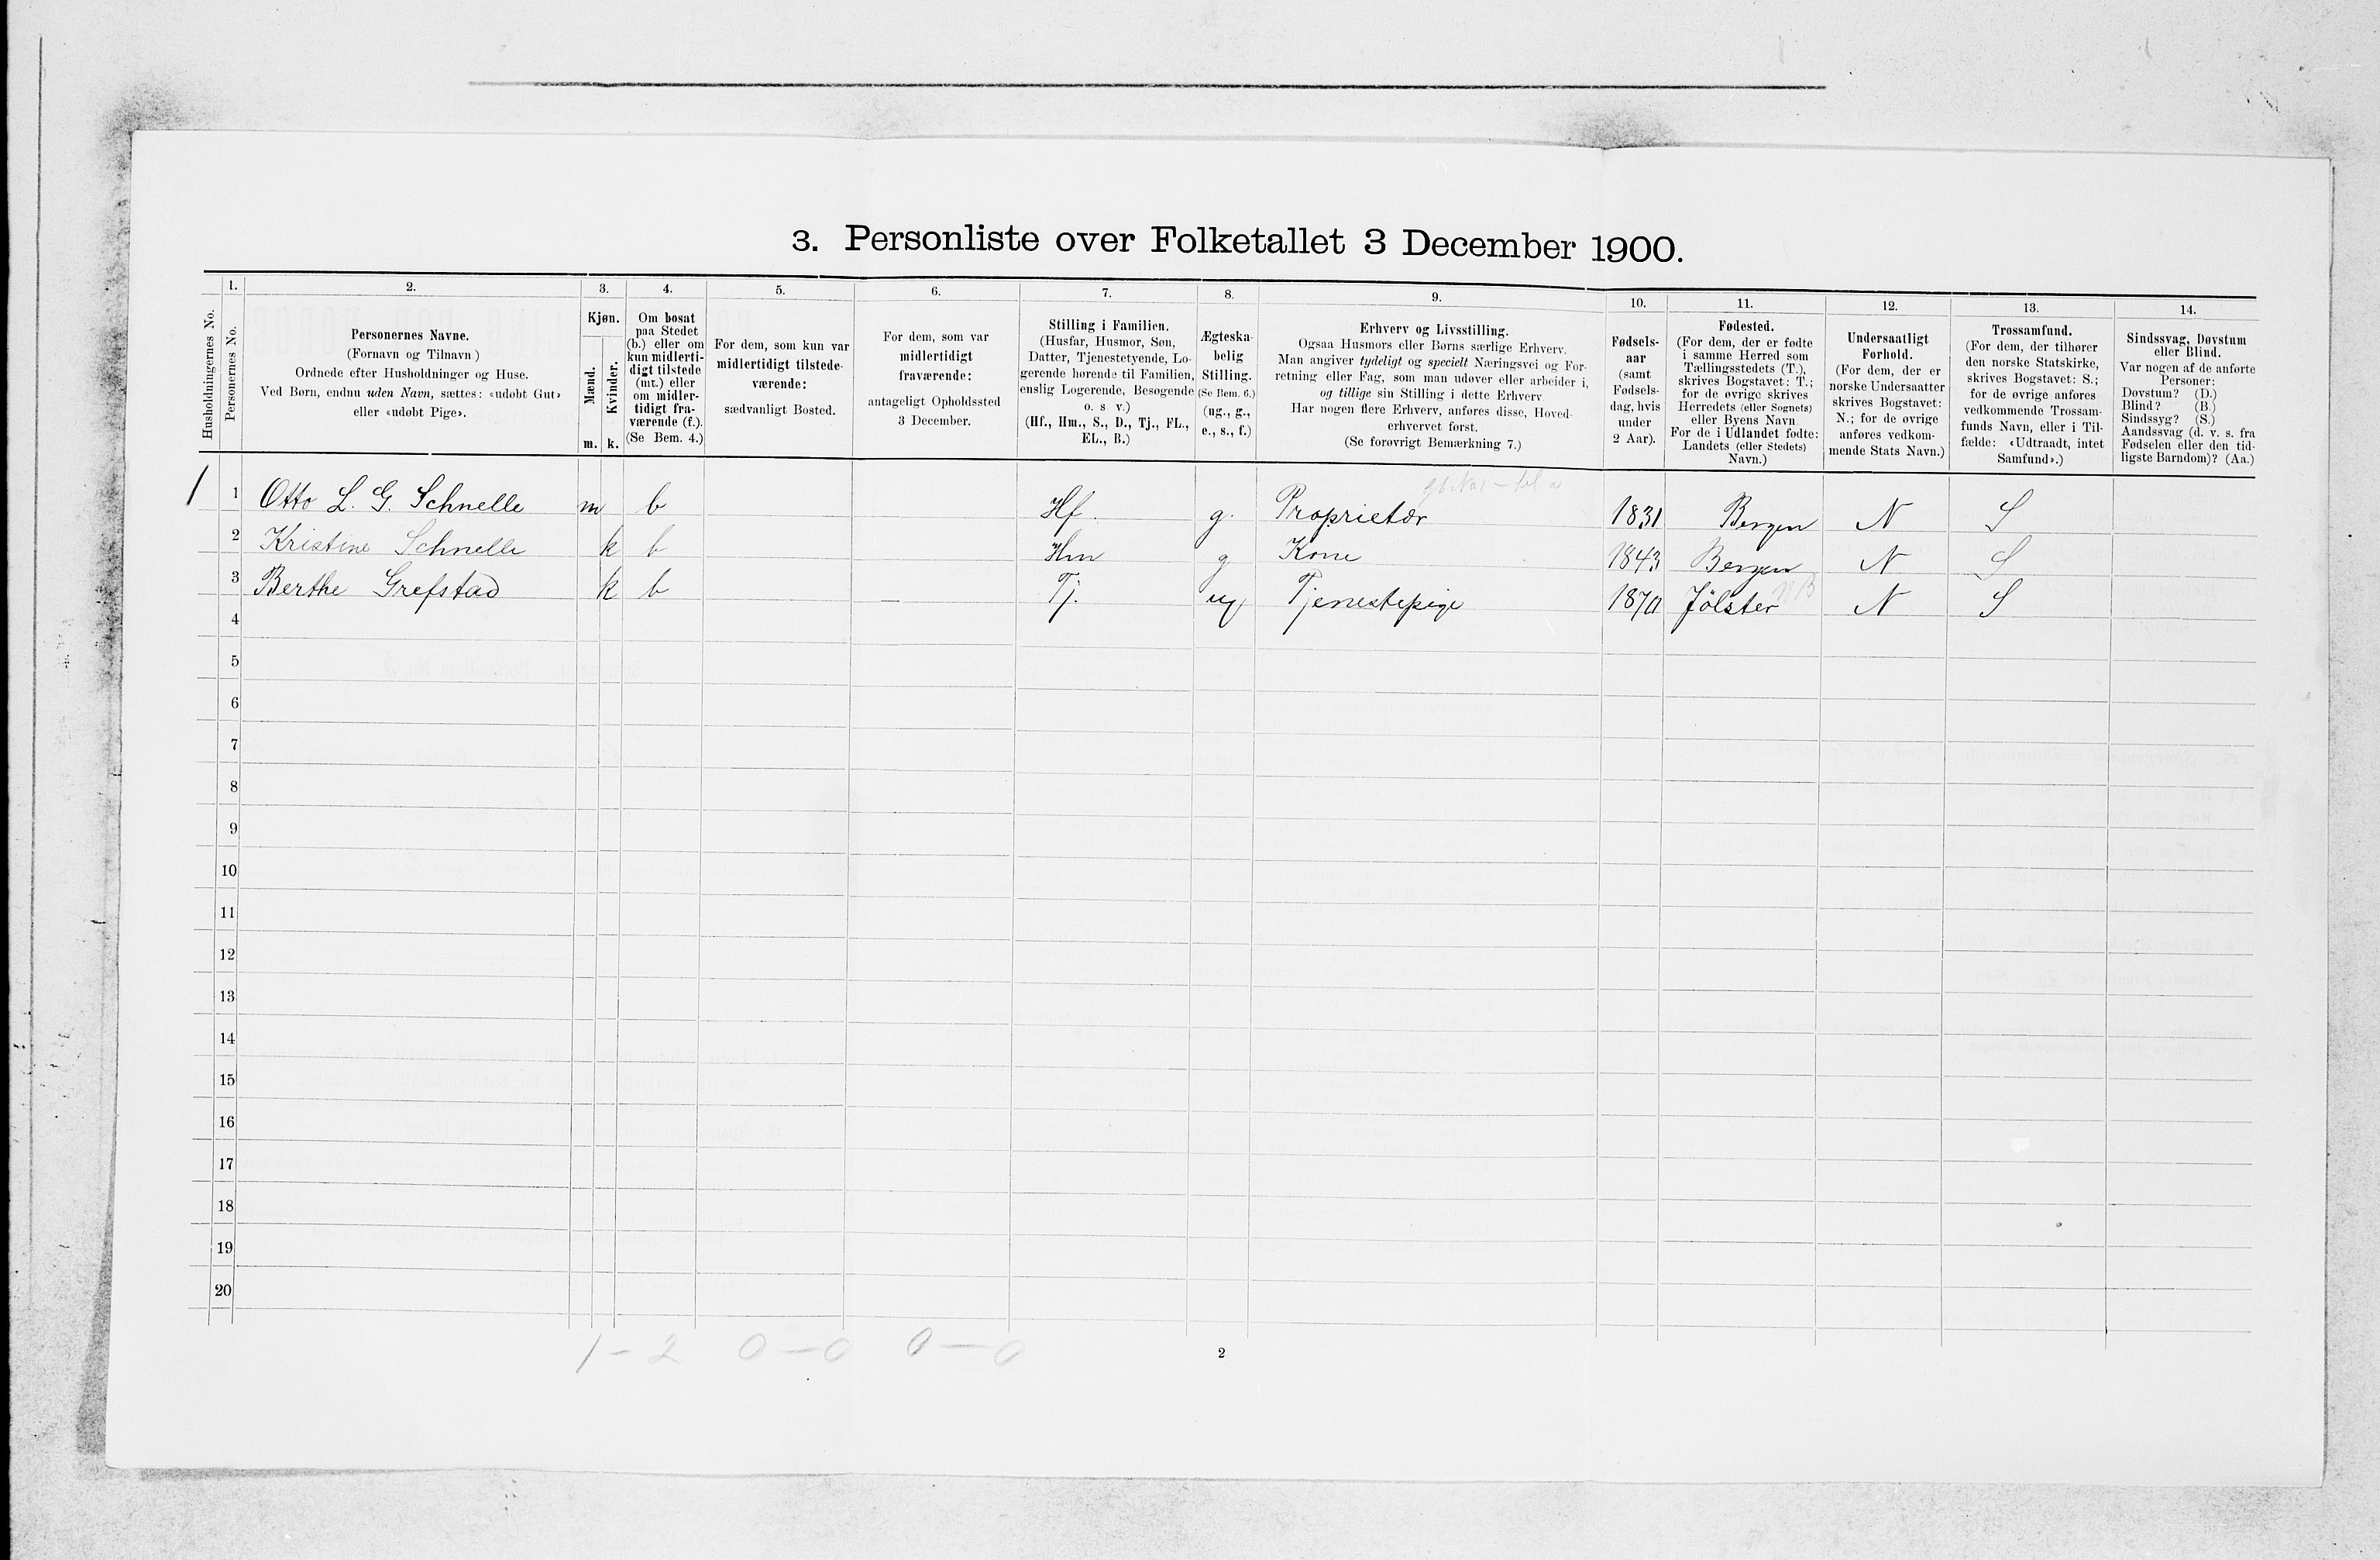 3. Personliste over Folketallet 3 December 1900.
Husholdningernes No.
1.
Personernes No.
2.
Personernes Navne.
(Fornavn og Tilnavn.)
Ordnede efter Husholdninger og Huse.
Ved Børn, endnu uden Navn, sættes: «udøbt Gut»
eller «udøbt Pige».
3.
Kjøn.
Mænd.
Kvinder.
m. k.
4.
Om bosat
paa Stedet
(b.) eller om
kun midlerti-
digt tilstede
(mt.) eller
om midler-
tidigt fra-
værende (f.).
(Se Bem. 4.)
5.
For dem, som kun var
midlertidigt tilstede-
værende:
sædvanligt Bosted.
6.
For dem, som var
midlertidigt
fraværende:
antageligt Opholdssted
3 December.
7.
Stilling i Familien.
(Husfar, Husmor, Søn,
Datter, Tjenestetyende, Lo-
gerende hørende til Familien,
enslig Logerende, Besøgende
o. s v.)
(Hf., Hm., S., D., Tj., FL.,
EL., B.)
8.
Ægteska-
belig
Stilling.
(Se Bem. 6.)
(ug., g.,
e., s., f.)
9.
Erhverv og Livsstilling.
Ogsaa Husmors eller Børns særlige Erhverv.
Man angiver tydeligt og specielt Næringsvei og For-
retning eller Fag, som man udøver eller arbeider i,
og tillige sin Stilling i dette Erhverv
Har nogen flere Erhverv, anføres disse, Hoved-
erhvervet først.
(Se forøvrigt Bemærkning 7.)
10.
Fødsels-
aar
(samt
Fødsels-
dag, hvis
under
2 Aar).
11.
Fødested.
(For dem, der er fødte
i samme Herred som
Tællingsstedets (T.),
skrives Bogstavet: T.;
for de øvrige skrives
Herredets (eller Sognets)
eller Byens Navn.
For de i Udlandet fødte:
Landets (eller Stedets)
Navn.)
12.
Undersaatligt
Forhold.
(For dem, der er
norske Undersaatter
skrives Bogstavet:
N.; for de øvrige
anføres vedkom-
mende Stats Navn.)
13.
Trossamfund.
(For dem, der tilhører
den norske Statskirke,
skrives Bogstavet: S.;
for de øvrige anføres
vedkommende Trossam-
funds Navn, eller i Til-
fælde: «Udtraadt, intet
Samfund».)
14.
Sindssvag, Døvstum
eller Blind.
Var nogen af de anførte
Personer:
Døvstum? (D.)
Blind? (B.)
Sindssyg? (S.)
Aandssvag (d. v. s. fra
Fødselen eller den tid-
ligste Barndom)? (Aa.)
1 1 Otto L. G. Schnelle m b Hf. g. Proprietær 1831 Bergen N S
2 Kristine Schnelle k b Hm g Kone 1843 Bergen N S
3 Berthe Grefstad k b — Tj. ug Tjenestepige 1870 Jølster NB N S
4
5
6
7
8
9
10
11
12
13
14
15
16
17
18
19
20
1 - 2 0 - 0 0 - 0
2